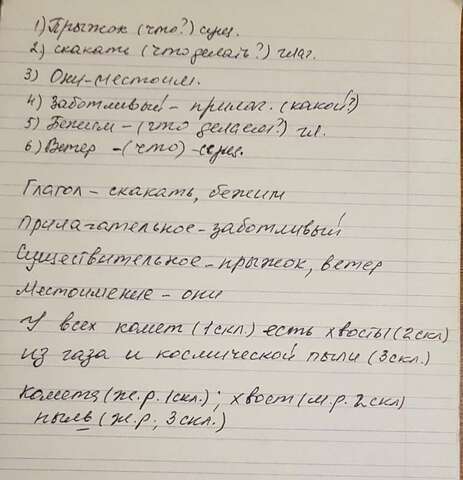 1) Прыжок (что?) сущ.
2) скакать (что делать?) глаг.
3) Они - местоим.
4) Заботливый - прилаг. (какой?)
5) Бежим - (что делаем?) гл.
6) Ветер - (что) - сущ.
Глагол - скакать, бежим
Прилагательное - заботливый
Существительное - прыжок, ветер
Местоимение - они
У всех комет (1скл.) есть хвосты (2скл)
из газа и космической пыли (3скл.)
Комета (ж.р. 1скл.); хвост (м.р. 2скл)
пыль (ж.р., 3скл.)